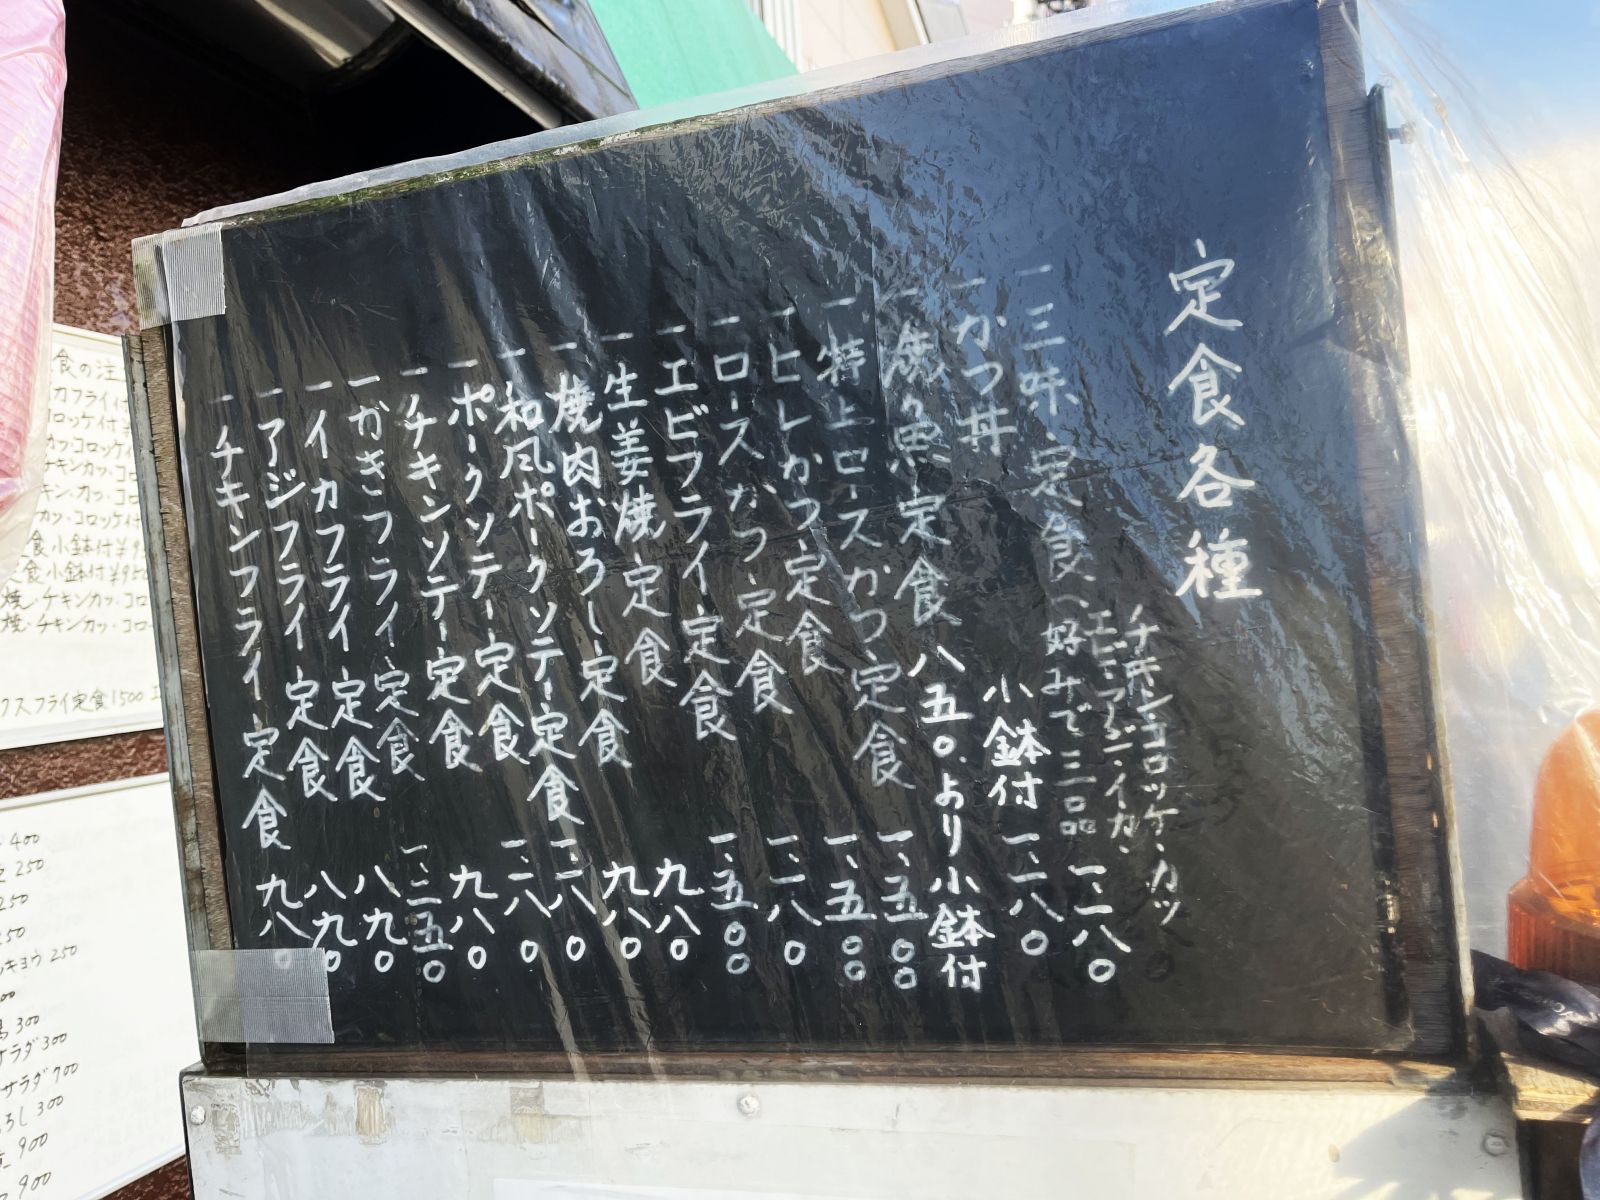 定食各種
チキン・コロッケ・カツ
エビ・アジ・イカ・
一三味定食(好みで三品 一、二八〇
一かつ丼 小鉢付 一、二八〇
一焼魚定食 八五〇より小鉢付
一特上ロースかつ定食 一、五〇〇
一ヒレかつ定食 一、五〇〇
一ロースかつ定食 一、二八〇
一エビフライ定食 一、五〇〇
一生姜焼定食 九八〇
一焼肉おろし定食 九八〇
一和風ポークソテー定食 一、二八〇
一ポークソテー定食 一、二八〇
一チキンソテー定食 九八〇
一かきフライ定食 一、二五〇
一イカフライ定食 八九〇
一アジフライ定食 八九〇
一チキンフライ定食 九八〇
食の注
カフライ付
ロッケ付
カッコロッケ
チキンカッ・コロ
キン・カッ・コロ
カッ・コロッケ付
食小鉢付¥9
定食小鉢付¥950
焼・チキンカッ・コロ
焼・チキンカッ・コロ
クスフライ定食1500
400
250
250
250
ッキョウ 250
00
300
サラダ 300
サラダ 700
ろし 300
900
900